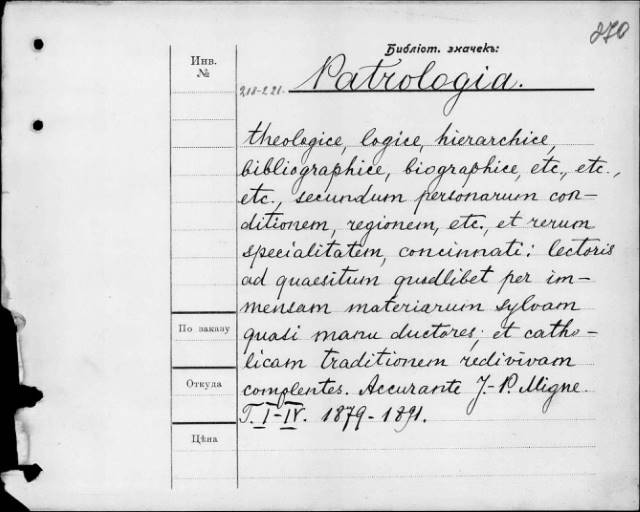 270
Библіот. значекъ:
Инв.
№
218-221.
Patrologia.
theologice, logice, hierarchice,
bibliographice, biographice, etc., etc.,
etc., secundum personarum con-
ditionem, regionem, etc., et rerum
specialitatem, concinnati: lectoris
ad quaesitum quodlibet per im-
mensam materiarum sylvam
quasi manu ductores; et catho-
licam traditionem redivivam
complentes. Accurante J.-P. Migne.
T. I-IV. 1879-1891.
По заказу
Откуда
Цѣна